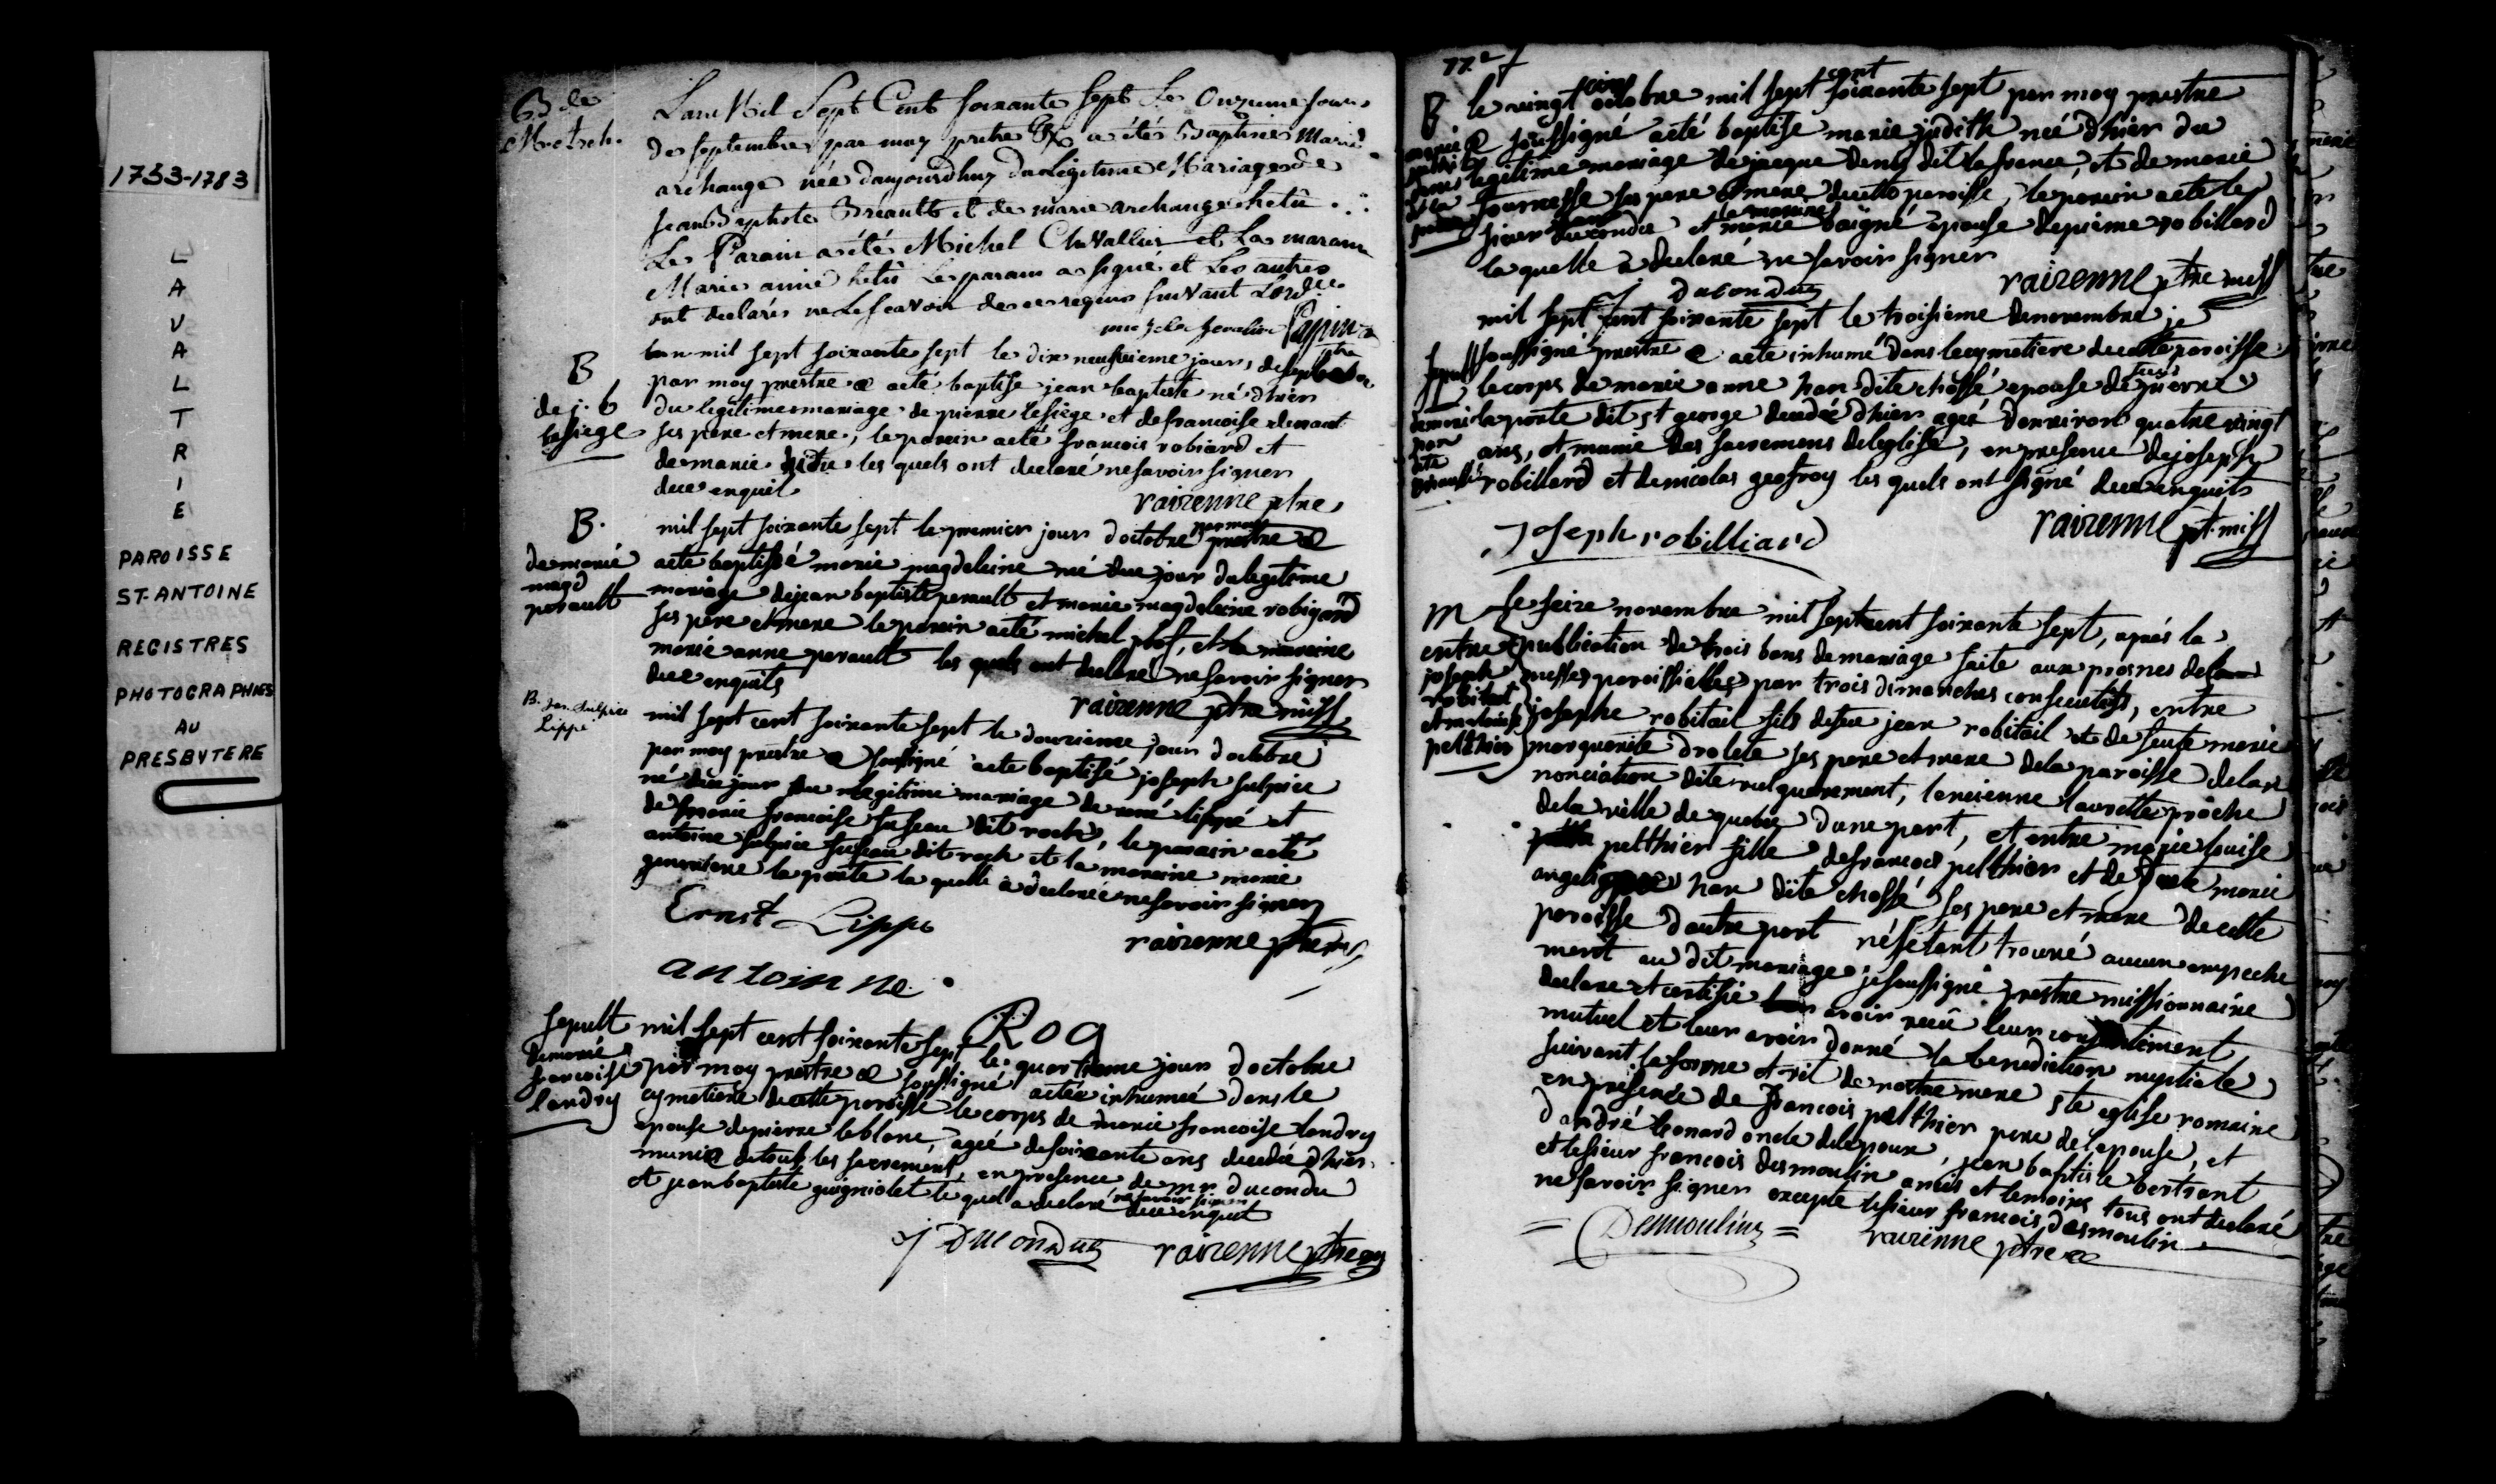 1753-1783
LAVALTRIE
PAROISSE
ST-ANTOINE
REGISTRES
PHOTOGRAPHIES
AU
PRESBYTERE
B de
M. arch.
Lan Mil Sept Cent soixante sept Le Onzieme jour
de septembre par moy pretre a étés Baptisés Marie
archange née daujourdhuy du Legitime Mariage de
Jean Baptiste Breault et de marie archange hetu
Le Parain a été Michel Chevallier et La maraine
Marie amie hetu Le parain a signé et Les autres
ont declarés ne Le scavoir de ce requis suivant Lord.ce
B
de j. b
lesiege
lan mil sept soixante sept le dix neufvieme jour de septembre
par moy prestre a acté baptisé jean baptiste né dhier
du legitime mariage de pierre lesiege et de francoise
ses pere et mere, le parein acté francois robiard et
de marie hetu les quels ont declaré ne savoir signer
de ce enquit
vairenne ptre
B.
de marie
magd
perault
mil sept soixante sept le premier jour doctobre par moy prestre
acté baptissé marie magdeleine né du jour du legetime
mariage de jean baptiste perault et marie magdeleine robigard
ses pere et mere le parein acté michel et la mareine
marie anne perault les quels ont declaré ne savoir signer
de ce enquits
vairenne ptre miss
B. Jos. Sulpice
Lippé
mil sept cent soixante sept le douzieme jour doctobre
par moy prestre soussigné acté baptisé joseph sulpice
né du jour du legitime mariage de lippé et
de marie francoise suseau dit rock, le parain acté
antoine sulpice suseau dit rock et la mareine marie
genevieve la porte la quelle a declarée ne savoir signer
Ernst Lippe
vairenne ptre
antoinne
Roq
sepult
de marie
francoise
landry
mil sept cent soixante sept le quatrieme jour doctobre
par moy prestre soussigné actée inhumée dans le
cymetiere de cette paroisse le corps de marie francoise landry
epouse de pierre leblanc, ageé de soixante ans decedée dhier
munie de touts les sacrement en presence de mr ducondu
et jean baptiste guigniolet le quel a declaré ne savoir signer de ce enquit
j Ducondu vairenne ptre
77e
B
marie
judith
le vingt cinq octobre mil sept cent soixante sept par moy prestre
soussigné acté baptisé marie judith neé dhier du
legetime mariage de jacque denis dit la france, et de marie
tournesse ses pere et mere de cette paroisse, le parein acté le
sieur jean ducondu et la mareine marie boigné epouse de pieme robillard
la quelle a declaré ne savoir signer
ducondu
vairenne ptre miss
sepult
de marie
han
dite
mil sept cent soixante sept le troisieme de novembre je
soussigné prestre acté inhumé dans le cymetiere de cette paroisse
le corps de marie anne han dite chossé epouse de feu pierre
la porte dit st george decedée dhier ageé denviron quatre vingt
ans, et munie des sacremens de leglise, en presence de joseph
robillard et de nicolas geofroy les quels ont signé de ce enquits
Joseph robilliard
vairenne pt. miss
M
entre
joseph
robitail
et m. louise
pelthier
le seize novembre mil sept cent soixante sept, aprés la
publication de trois bans de mariage faite aux prosnes de la
messes paroissialles par trois dimanches consecutifs, entre
josephe robitail fils de feu jean robitail et de feute marie
marguerite drolete ses pere et mere de la paroisse de lan
nonciation dite vulguerement, lancienne laurette proche
de la ville de quebec dune part, et entre marie louise
pelthier fille de francois pelthier et de feute marie
angelique han dite chossé ses pere et mere de cette
paroisse dautre part nésetant trouvé aucun empeche
ment au dit mariage, je soussigné prestre missionnaire
declare et certifie avoir receü leur consentement
mutuel et leur avoir donné la benediction nuptiale
suivant la forme et rit de nostre mere ste eglise romaine
en présence de francois pelthier pere de lepouse, et
dandré leonard oncle de lepoux, jean baptiste bertrant
et le sieur francois desmoulin amis et temoins tous ont declaré
ne savoir signer excepte le sieur francois desmoulin
= Desmoulins = vairenne ptre